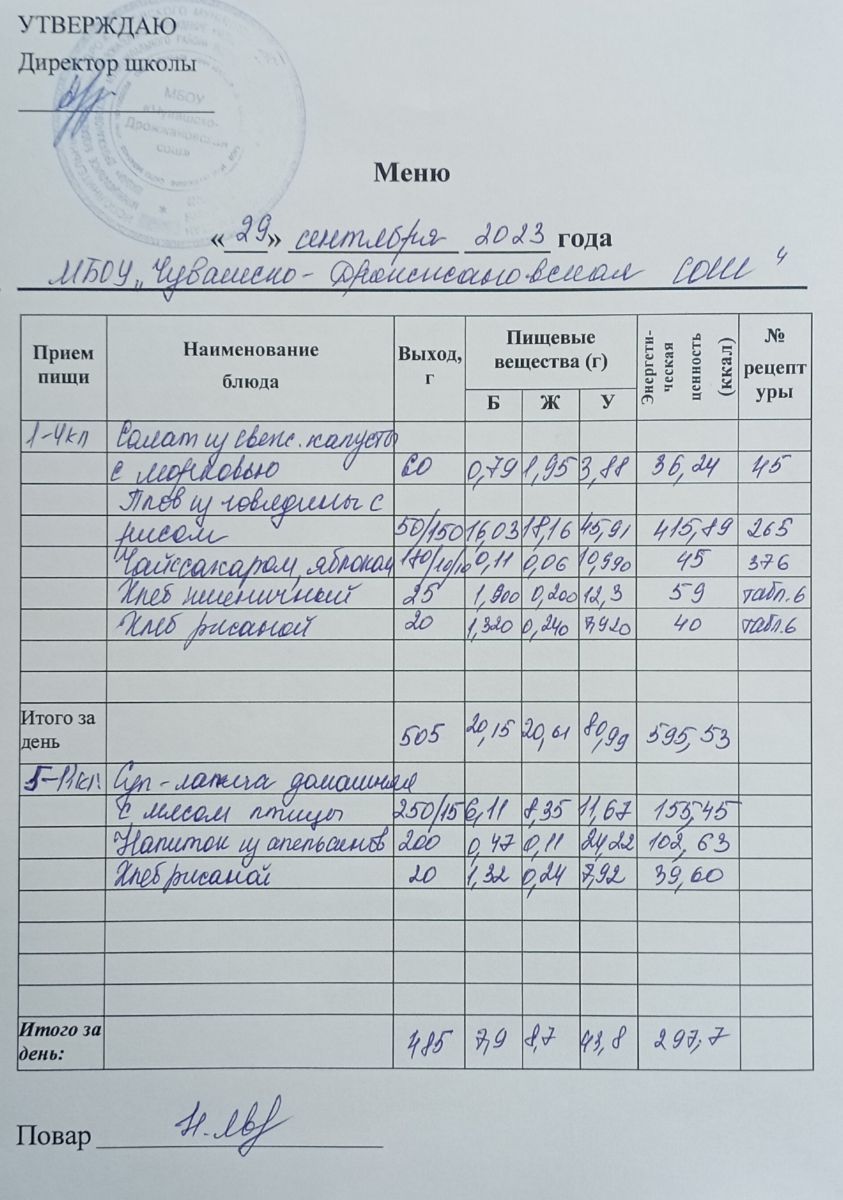 УТВЕРЖДАЮ
Директор школы
МБОУ
«Чувашско-
Дрожжановская
СОШ»
Меню
«29» сентября 2023 года
МБОУ „Чувашско - Дрожжановская СОШ"
Прием пищи Наименование блюда Выход, г Пищевые вещества (г) Энергети-ческая ценность (ккал) № рецептуры
Б Ж У
1-4кл Салат из свеж. капусты
с морковью 60 0,79 1,95 3,88 36,24 45
Плов из говядины с
рисом 50/150 16,03 18,16 45,91 415,89 265
Чай с сахаром, яблоком 180/10/10 0,11 0,06 10,990 45 376
Хлеб пшеничный 25 1,900 0,200 12,3 59 табл.6
Хлеб ржаной 20 1,320 0,240 7,920 40 табл.6
Итого за
день 505 20,15 20,61 80,99 595,53
5-11кл. Суп - лапша домашняя
с мясом птицы 250/15 6,11 8,35 11,67 155,45
Напиток из апельсинов 200 0,47 0,11 24,22 102,63
Хлеб ржаной 20 1,32 0,24 7,92 39,60
Итого за
день: 485 7,9 8,7 43,8 297,7
Повар